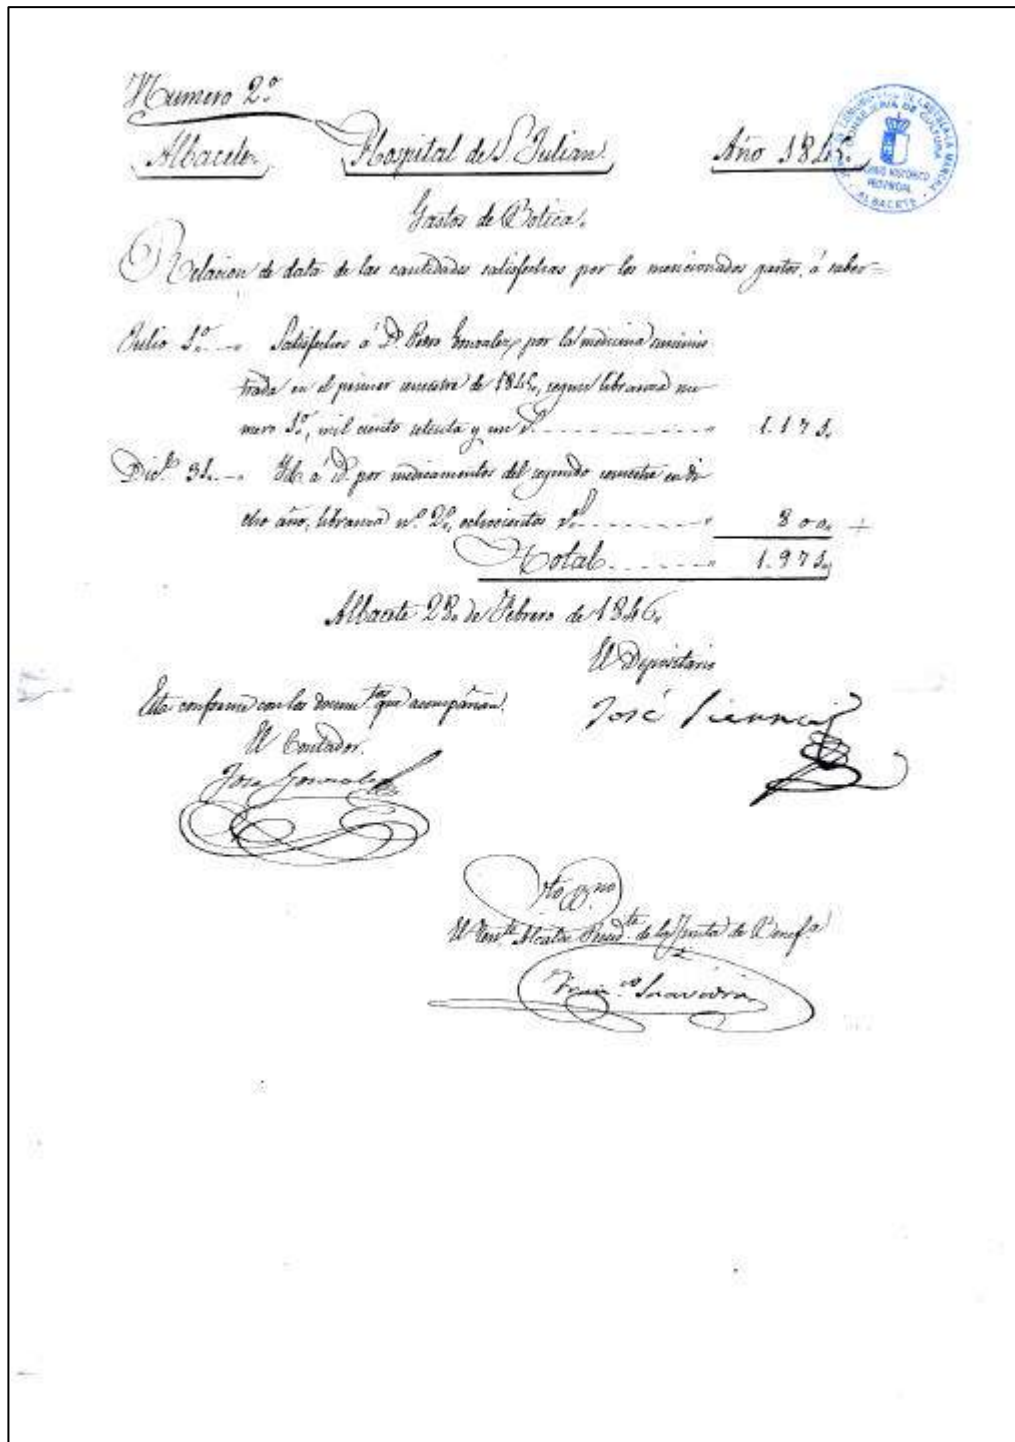 Numero 2º
Albacete. Hospital de S. Julian. Año 1845.
JUNTA DE COMUNIDADES DE CASTILLA-LA MANCHA
CONSEJERIA DE CULTURA
ARCHIVO HISTORICO
PROVINCIAL
ALBACETE
Gastos de Botica.
Relacion de data de las cantidades satisfechas por los mencionados gastos, á saber=
Julio 1º Satisfechos á Dn. Pedro Gonzalez, por la medicina suminis
trada en el primer semestre de 1845, segun libranza nu
mero 1º, mil ciento setenta y un rs. 1.171.
Dice. 31. Id. a id. por medicamentos del segundo semestre en di
cho año, libranza nº 2º, ochocientos rs. 800.
Total 1.971.
Albacete 28 de Febrero de 1846.
El Depositario
Está conforme con los documtos que acompañan.
José
El Contador.
Jose Gonzalez
Vto Bno
El Tente Alcalde Presidte de la Junta de Benefa
Franco Saavedra